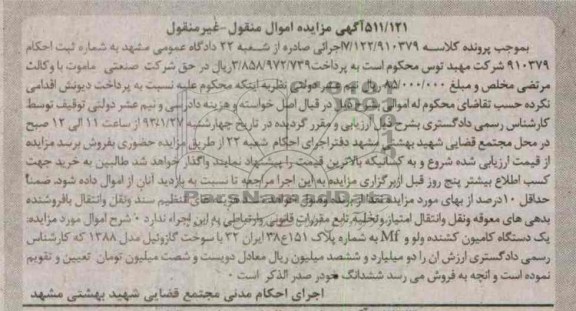 ۵۱۱/۱۲۱ آگهی مزایده اموال منقول-غیرمنقول
بموجب پرونده کلاسه ۷/۱۲۲/۹۱۰۳۷۹اجرائی صادره از شعبه ۲۲ دادگاه عمومی مشهد به شماره ثبت احکام
۹۱۰۳۷۹ شرکت مهبد توس محکوم است به پرداخت۳/۸۵۸/۹۷۲/۷۳۹ریال در حق شرکت صنعتی ماموت با وکالت
مرتضی مخلص و مبلغ ۸۵/۰۰۰/۰۰۰ ریال نیم عشر دولتی نظربه اینکه محکوم علیه نسبت به پرداخت دیونش اقدامی
نکرده حسب تقاضای محکوم له اموالی بشرح ذیل در قبال اصل خواسته و هزینه دادرسی و نیم عشر دولتی توقیف توسط
کارشناس رسمی دادگستری بشرح ذیل ارزیابی و مقرر گردیده در تاریخ چهارشنبه ۹۳/۱/۲۷ از ساعت ۱۱ الی ۱۲ صبح
در محل مجتمع قضایی شهید بهشتی مشهد دفتراجرای احکام شعبه ۲۲ از طریق مزایده حضوری بفروش برسد مزایده
از قیمت ارزیابی شده شروع و به کسانیکه بالاترین قیمت را پیشنهاد نمایند واگذار خواهد شد طالبین به خرید جهت
کسب اطلاع بیشتر پنج روز قبل ازبرگزاری مزایده به این اجرا مراجعه تا نسبت به بازدید آنان از اموال داده شود. ضمناً
حداقل ۱۰درصد از بهای مورد مزایده فی المجلس از برنده وصول خواهد شد هزینه های تنظیم سند ونقل وانتقال بافروشنده
بدهی های معوقه ونقل وانتقال امتیاز وتخلیه تابع مقررات قانونی وارتباطی به این اجراء ندارد ۰ شرح اموال مورد مزایده:
یک دستگاه کامیون کشنده ولو و Mf به شماره پلاک ۱۵۱ع۳۸ ایران ۳۲ با سوخت گازوئیل مدل ۱۳۸۸ که کارشناس
رسمی دادگستری ارزش ان را دو میلیارد و ششصد میلیون ریال معادل دویست و شصت میلیون تومان تعیین و تقویم
نموده است و انچه به فروش می رسد ششدانگ خودر صدر الذکر است ۰
اجرای احکام مدنی مجتمع قضایی شهید بهشتی مشهد